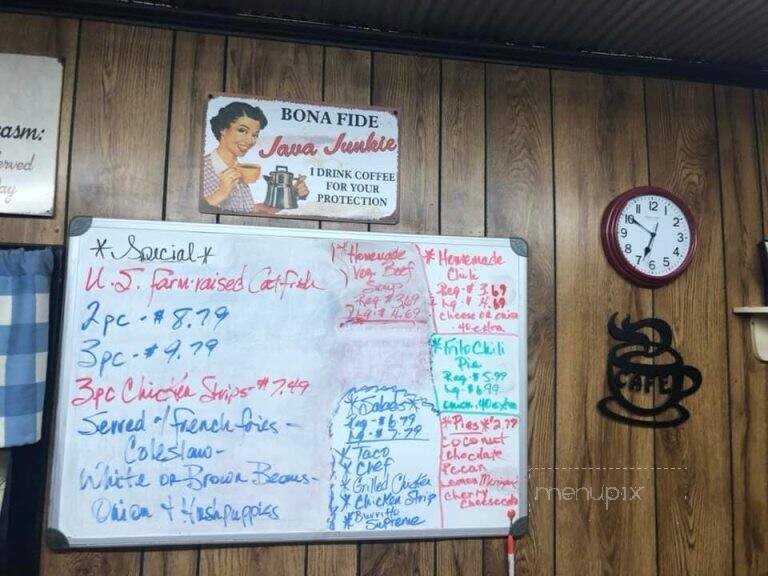 asm:
erved
ay
BONA FIDE
Java Junkie
I DRINK COFFEE
FOR YOUR
PROTECTION
*Special*
U.S. Farm-raised Catfish
2pc - $8.79
3pc - $9.79
3pc Chicken Strips - $7.49
Served w/ French fries -
Coleslaw -
White or Brown Beans -
Onion & Hushpuppies
* Homemade
Veg. Beef
Soup
Reg $3.69
Lg. $4.69
* Homemade
Chili
Reg. $3.69
Lg. $4.69
cheese or onion
.40 extra
*Frito Chili
Pie
Reg. $5.99
Lg. $6.99
onion .40 extra
*Salads*
Reg - $6.79
Lg. $7.79
* Taco
* Chef
* Grilled Chicken
* Chicken Strip
* Burrito
Supreme
*Pies* $2.79
Coconut
chocolate
Pecan
Lemon Meringue
cherry
cheesecake
12
1
2
3
4
5
6
7
8
9
10
11
CAFE
menupix